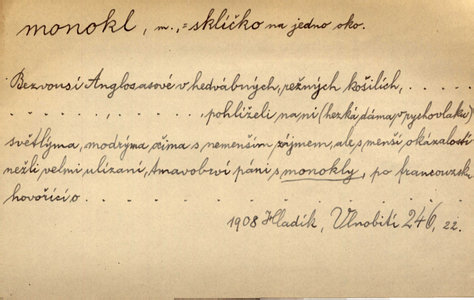 monokl, m., = sklíčko na jedno oko.
Bezvousí Anglosasové v hedvábných, režných košilích, . . . . .
. . . . . . , . . . . . . pohlíželi na ni (hezká dáma, v rychovlaku)
světlýma, modrýma očima s nemenším zájmem, ale s menší okázalostí
nežli velmi ulízaní, tmavobrví páni s monokly, po francouzsku
hovořící o . . . . . . . . . . . .
1908 Hladík, Vlnobití 246, 22.